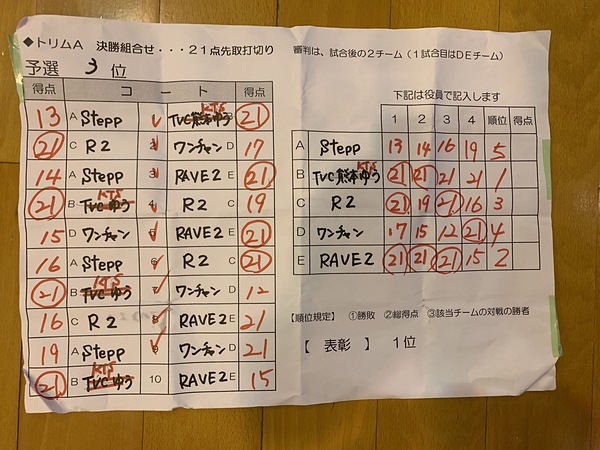 ◆トリムA 決勝組合せ・・・21点先取打切り 審判は、試合後の2チーム(1試合目はDEチーム)
予選 3 位
得点 コート 得点
13 A Stepp TVC熊本ゆう KTS B 21
21 C R2 2 ワンチャン D 17
14 A Stepp 3 RAVE2 E 21
21 B TVCゆう KTS 4 R2 C 19
15 D ワンチャン 5 RAVE2 E 21
16 A Stepp 6 R2 C 21
21 B TVCゆう KTS 7 ワンチャン D 12
16 C R2 8 RAVE2 E 21
19 A Stepp 9 ワンチャン D 21
21 B TVCゆう KTS 10 RAVE2 E 15
下記は役員で記入します
1 2 3 4 順位 得点
A Stepp 13 14 16 19 5
B TVC熊本ゆう KTS 21 21 21 21 1
C R2 21 19 21 16 3
D ワンチャン 17 15 12 21 4
E RAVE2 21 21 21 15 2
【順位規定】 ①勝敗 ②総得点 ③該当チームの対戦の勝者
【 表彰 】 1位